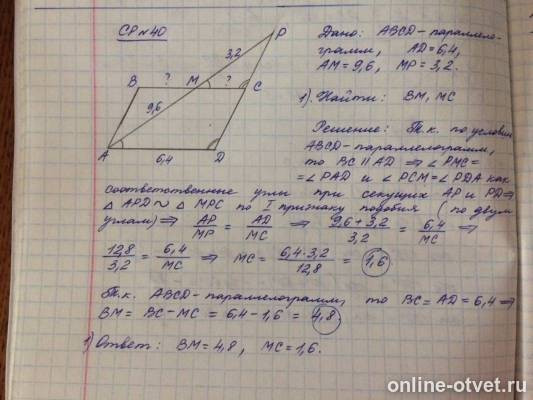 СР №40
P
3,2
B
?
M
?
C
9,6
A
6,4
D
Дано: ABCD - параллело-
грамм, AD = 6,4,
AM = 9,6, MP = 3,2.
1). Найти: BM, MC
Решение: Т.к. по условию
ABCD - параллелограмм,
то BC || AD ⇒ ∠PMC =
= ∠PAD и ∠PCM = ∠PDA как
соответственные углы при секущих AP и PD ⇒
△ APD ~ △ MPC по I признаку подобия (по двум
углам) ⇒ AP/MP = AD/MC ⇒ 9,6 + 3,2/3,2 = 6,4/MC ⇒
12,8/3,2 = 6,4/MC ⇒ MC = 6,4 · 3,2/12,8 = 1,6
Т.к. ABCD - параллелограмм, то BC = AD = 6,4 ⇒
BM = BC - MC = 6,4 - 1,6 = 4,8.
1) Ответ: BM = 4,8, MC = 1,6.
online-otvet.ru